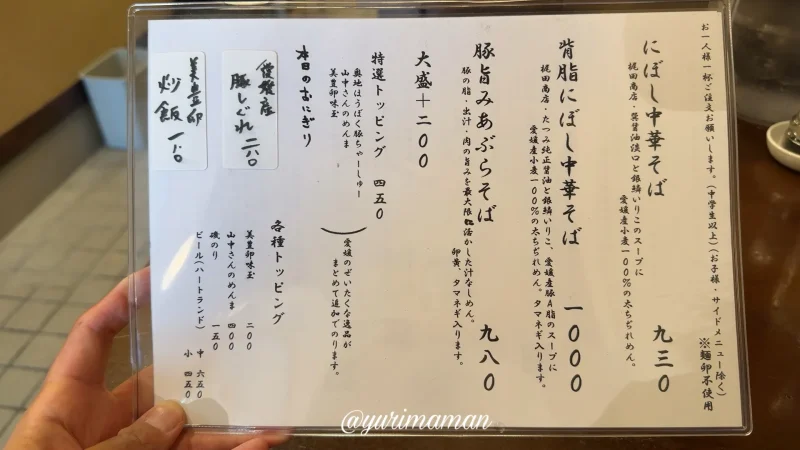 お一人様一杯ご注文お願いします。(中学生以上)(お子様・サイドメニュー除く)
※麺卵不使用
にぼし中華そば 九三〇
梶田商店・巽醤油淡口と銀鱗いりこのスープに
愛媛産小麦一〇〇%の太ちぢれめん。
背脂にぼし中華そば 一〇〇〇
梶田商店・たつみ純正醤油と銀鱗いりこ、愛媛産豚A脂のスープに
愛媛産小麦一〇〇%の太ちぢれめん。タマネギ入ります。
豚旨みあぶらそば 九八〇
豚の脂・出汁・肉の旨みを最大限に活かした汁なしめん。
卵黄、タマネギ入ります。
大盛+二〇〇
特選トッピング 四五〇
奥地はうばく豚ちゃーしゅー
山中さんのめんま
美豊卵味玉
愛媛のぜいたくな逸品が
まとめて追加でのります。
本日のおにぎり
愛媛産
豚しぐれ 二八〇
美豊卵
炒飯 一八〇
各種トッピング
美豊卵味玉 二〇〇
山中さんのめんま 四〇〇
磯のり 一五〇
ビール(ハートランド) 中 六五〇
小 四五〇
@yurimaman